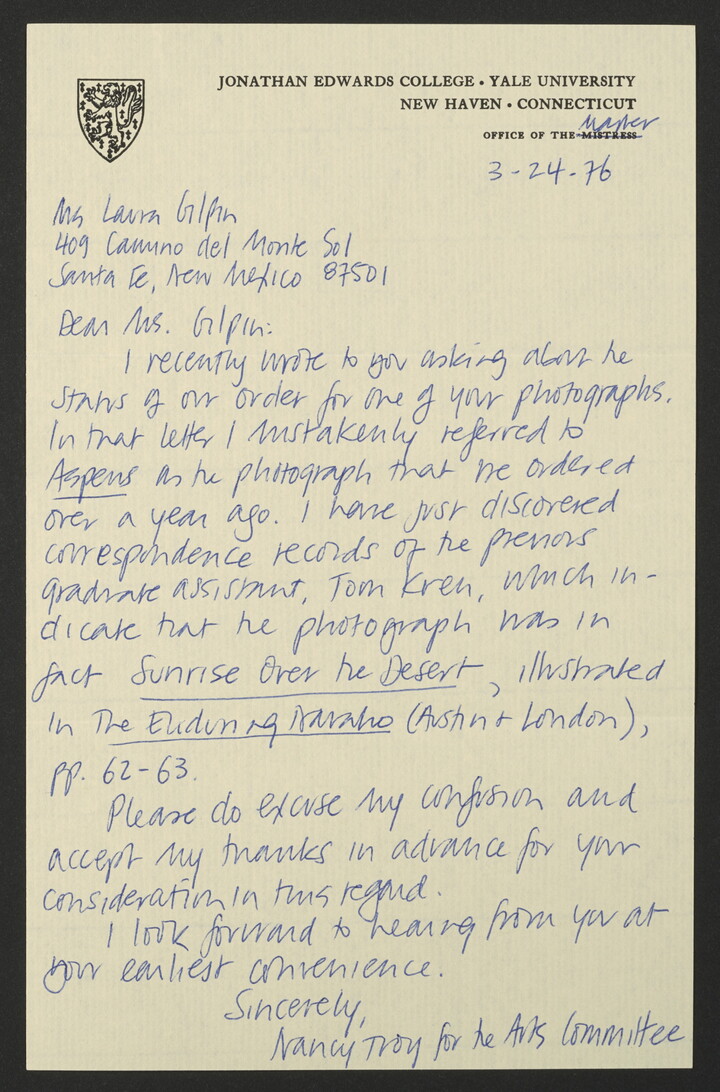 JONATHAN EDWARDS COLLEGE • YALE UNIVERSITY
NEW HAVEN • CONNECTICUT
Master
OFFICE OF THE MISTRESS
3-24-76
Ms Laura Gilpin
409 Camino del Monte Sol
Santa Fe, New Mexico 87501
Dear Ms. Gilpin:
I recently wrote to you asking about the
status of our order for one of your photographs.
In that letter I mistakenly referred to
Aspens as the photograph that we ordered
over a year ago. I have just discovered
correspondence records of the previous
graduate assistant, Tom Kren, which in-
dicate that the photograph was in
fact Sunrise Over the Desert, illustrated
in The Enduring Navaho (Austin + London),
pp. 62-63.
Please do excuse my confusion and
accept my thanks in advance for your
consideration in this regard.
I look forward to hearing from you at
your earliest convenience.
Sincerely,
Nancy Troy for the Arts Committee